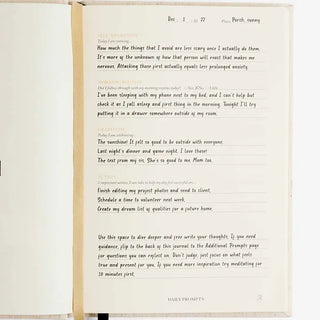 Dec 1 22 Place Porch, sunny
Today I am noticing...
How much the things that I avoid are less scary once I actually do them.
It's more of the unknown of how that person will react that makes me
nervous. Attacking those first actually equals less prolonged anxiety.
I've been sleeping with my phone next to my bed, and I can't help but
check it as I fall asleep and first thing in the morning. Tonight I'll try
putting it in a drawer somewhere outside of my room.
Today I am celebrating...
The sunshine! It felt so good to be outside with everyone.
Last night's dinner and game night. I love these!
The text from my sis. She's so good to me. Mom too.
Finish editing my project photos and send to client.
Schedule a time to volunteer next week.
Create my dream list of qualities for a future home.
Use this space to dive deeper and free write your thoughts. If you need
guidance, flip to the back of this journal to the Additional Prompts page
for questions you can reflect on. Don't judge, just focus on what feels
true and present for you. If you need more inspiration try meditating for
10 minutes first.
DAILY PROMPTS